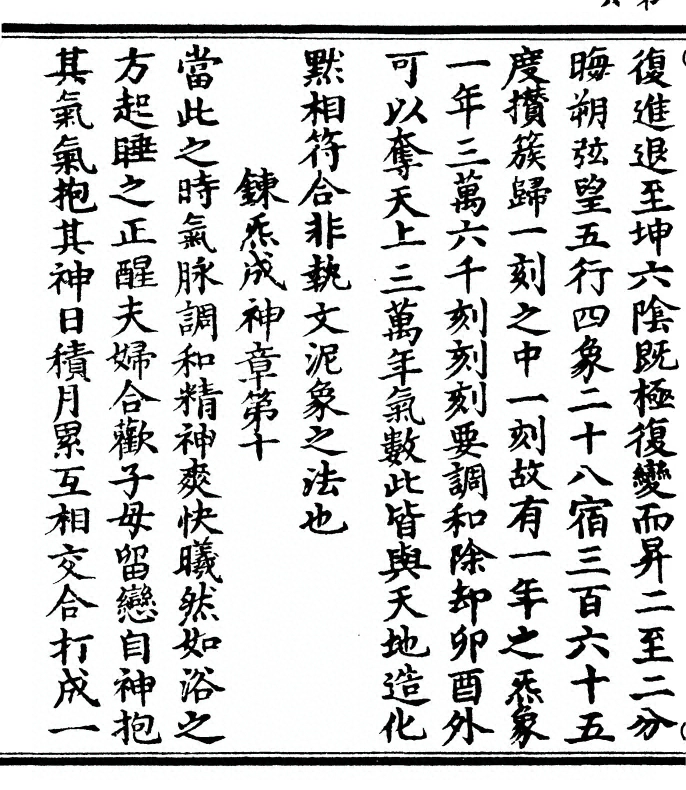 復進退至坤六陰既極復變而昇二至二分
晦朔弦望五行四象二十八宿三百六十五
度攢簇歸一刻之中一刻故有一年之炁象
一年三萬六千刻刻刻要調和除却卯酉外
可以奪天上三萬年氣數此皆與天地造化
黙相符合非執文泥象之法也
鍊炁成神章第十
當此之時氣脉調和精神爽快曦然如浴之
方起睡之正醒夫婦合歡子母留戀自神抱
其氣氣抱其神日積月累互相交合打成一